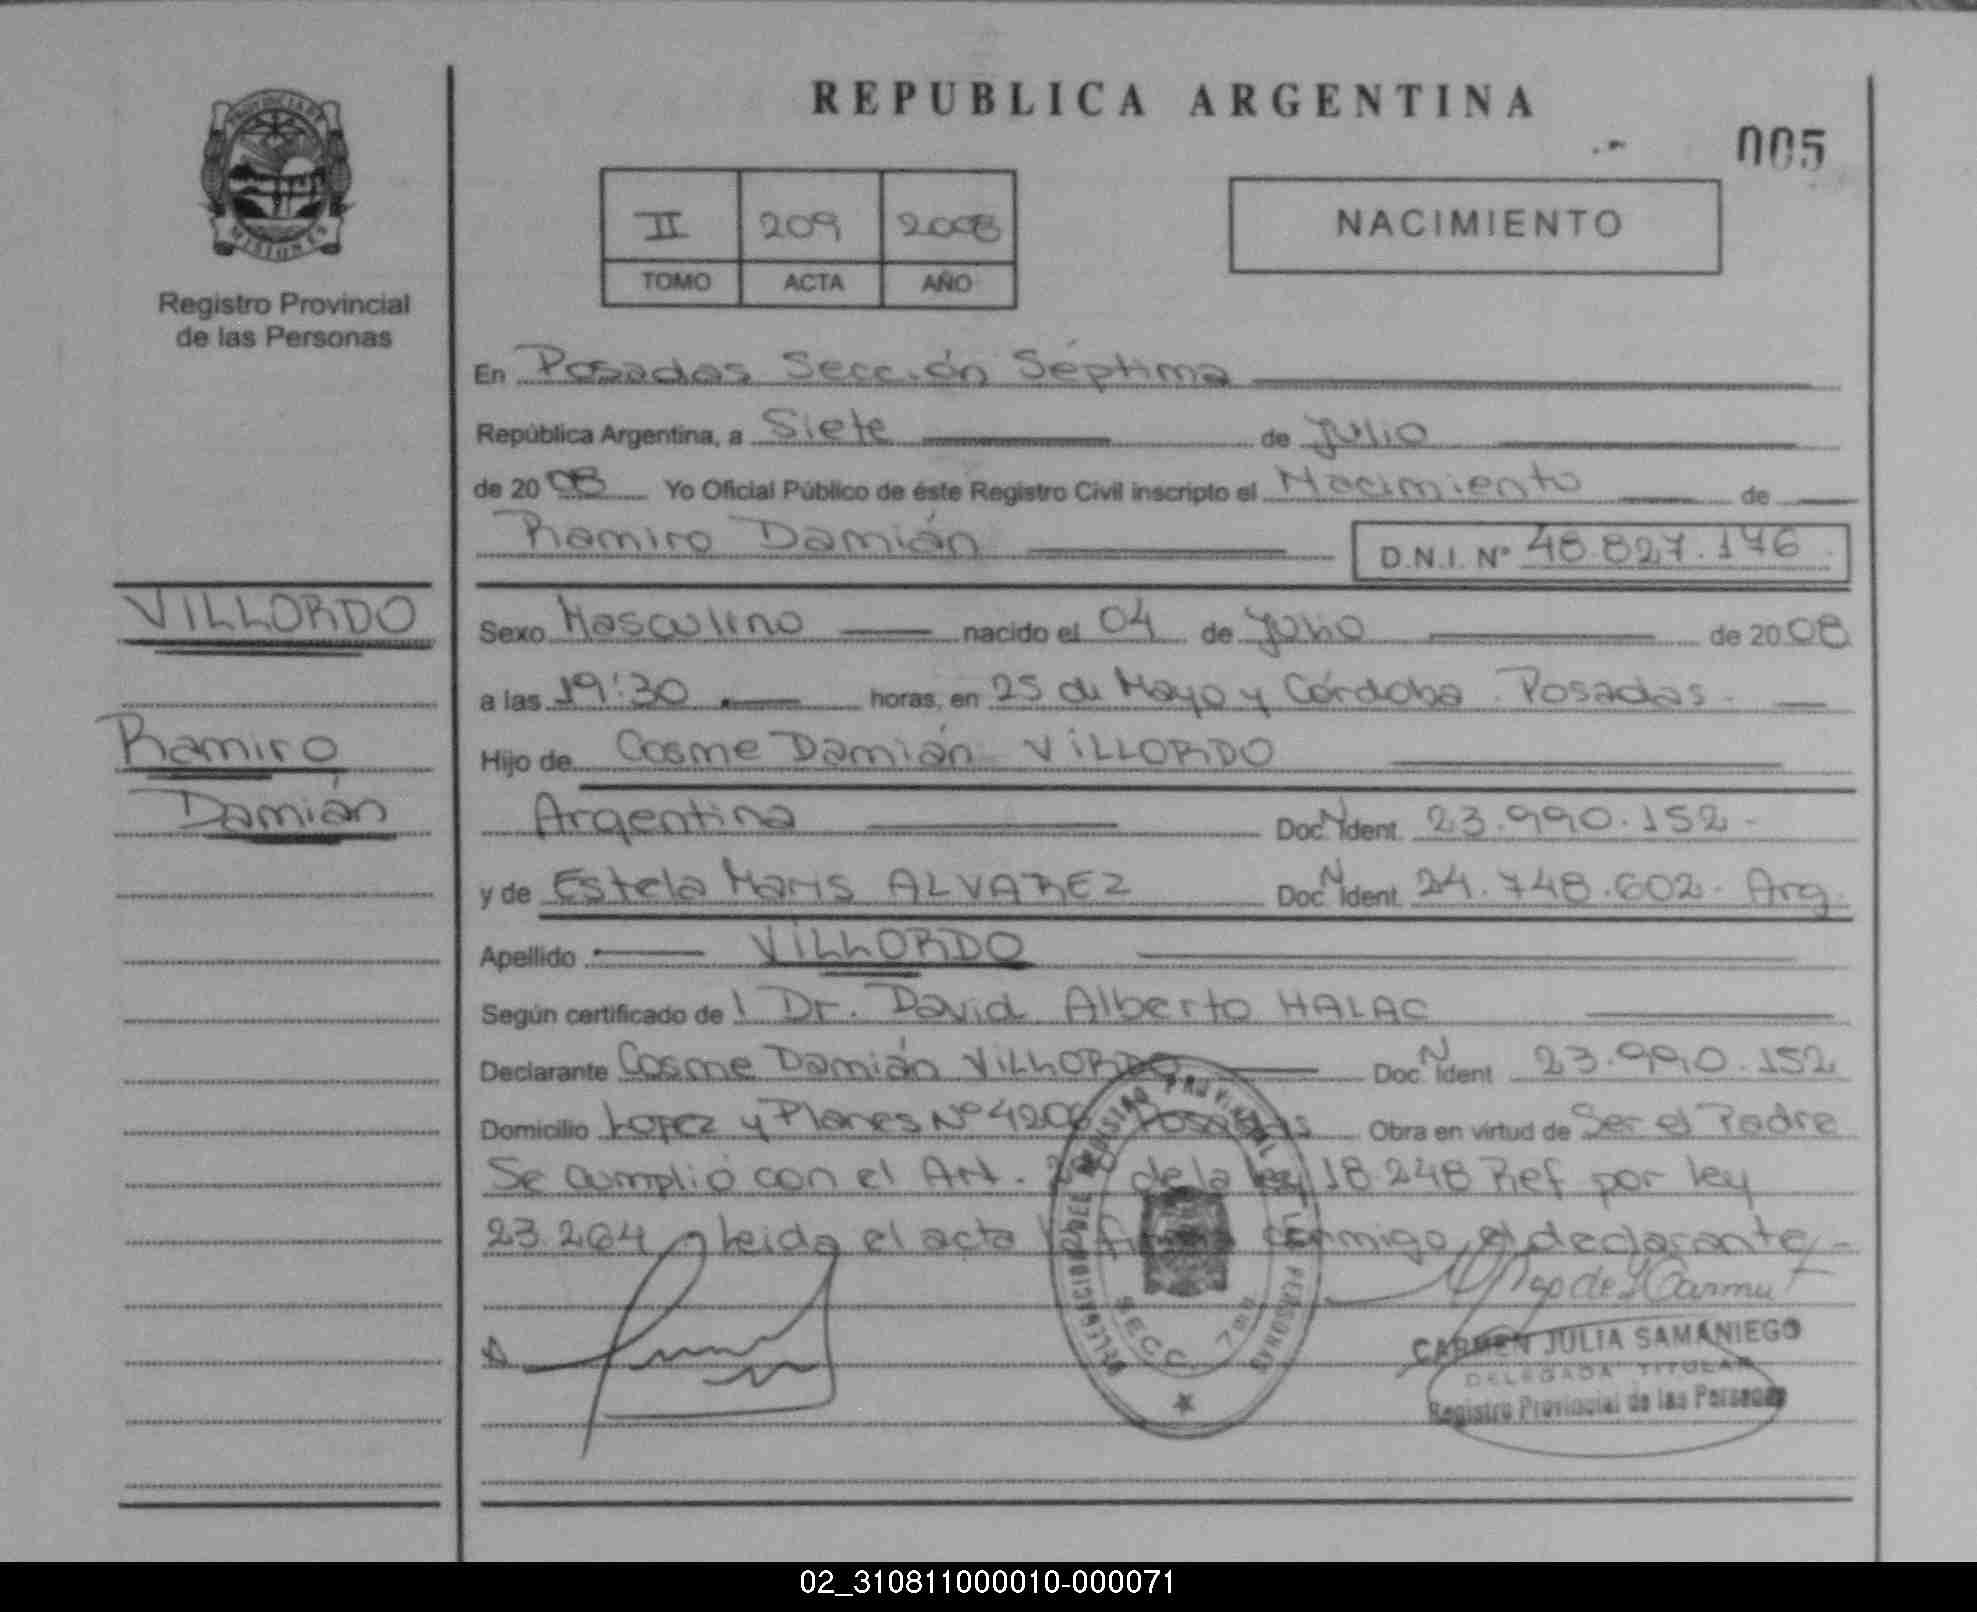 REPUBLICA ARGENTINA
005
PROVINCIA DE
MISIONES
Registro Provincial
de las Personas
II 209 2008
TOMO ACTA AÑO
NACIMIENTO
En Posadas Sección Séptima
República Argentina, a Siete de Julio
de 2008 Yo Oficial Público de éste Registro Civil inscripto el Nacimiento de
Ramiro Damián D.N.I. Nº 48.827.176
VILLORDO
Ramiro
Damián
Sexo Masculino nacido el 04 de Julio de 2008
a las 19:30 horas, en 25 de Mayo y Córdoba. Posadas.
Hijo de Cosme Damián VILLORDO
Argentina Doc N Ident. 23.990.152.
y de Estela Maris ALVAREZ Doc N Ident. 24.748.602. Arg.
Apellido VILLORDO
Según certificado de l Dr. David Alberto HALAC
Declarante Cosme Damián VILLORDO Doc N Ident 23.990.152
Domicilio Lopez y Planes Nº 4206 Posadas Obra en virtud de Ser el Padre
Se cumplió con el Art. de la ley 18.248 Ref por ley
23.264 leida el acta la firma conmigo el declarante.
DELEGACION DEL REGISTRO PROVINCIAL PERSONAS
SECC. 7ma
CARMEN JULIA SAMANIEGO
DELEGADA TITULAR
Registro Provincial de las Personas
02_310811000010-000071